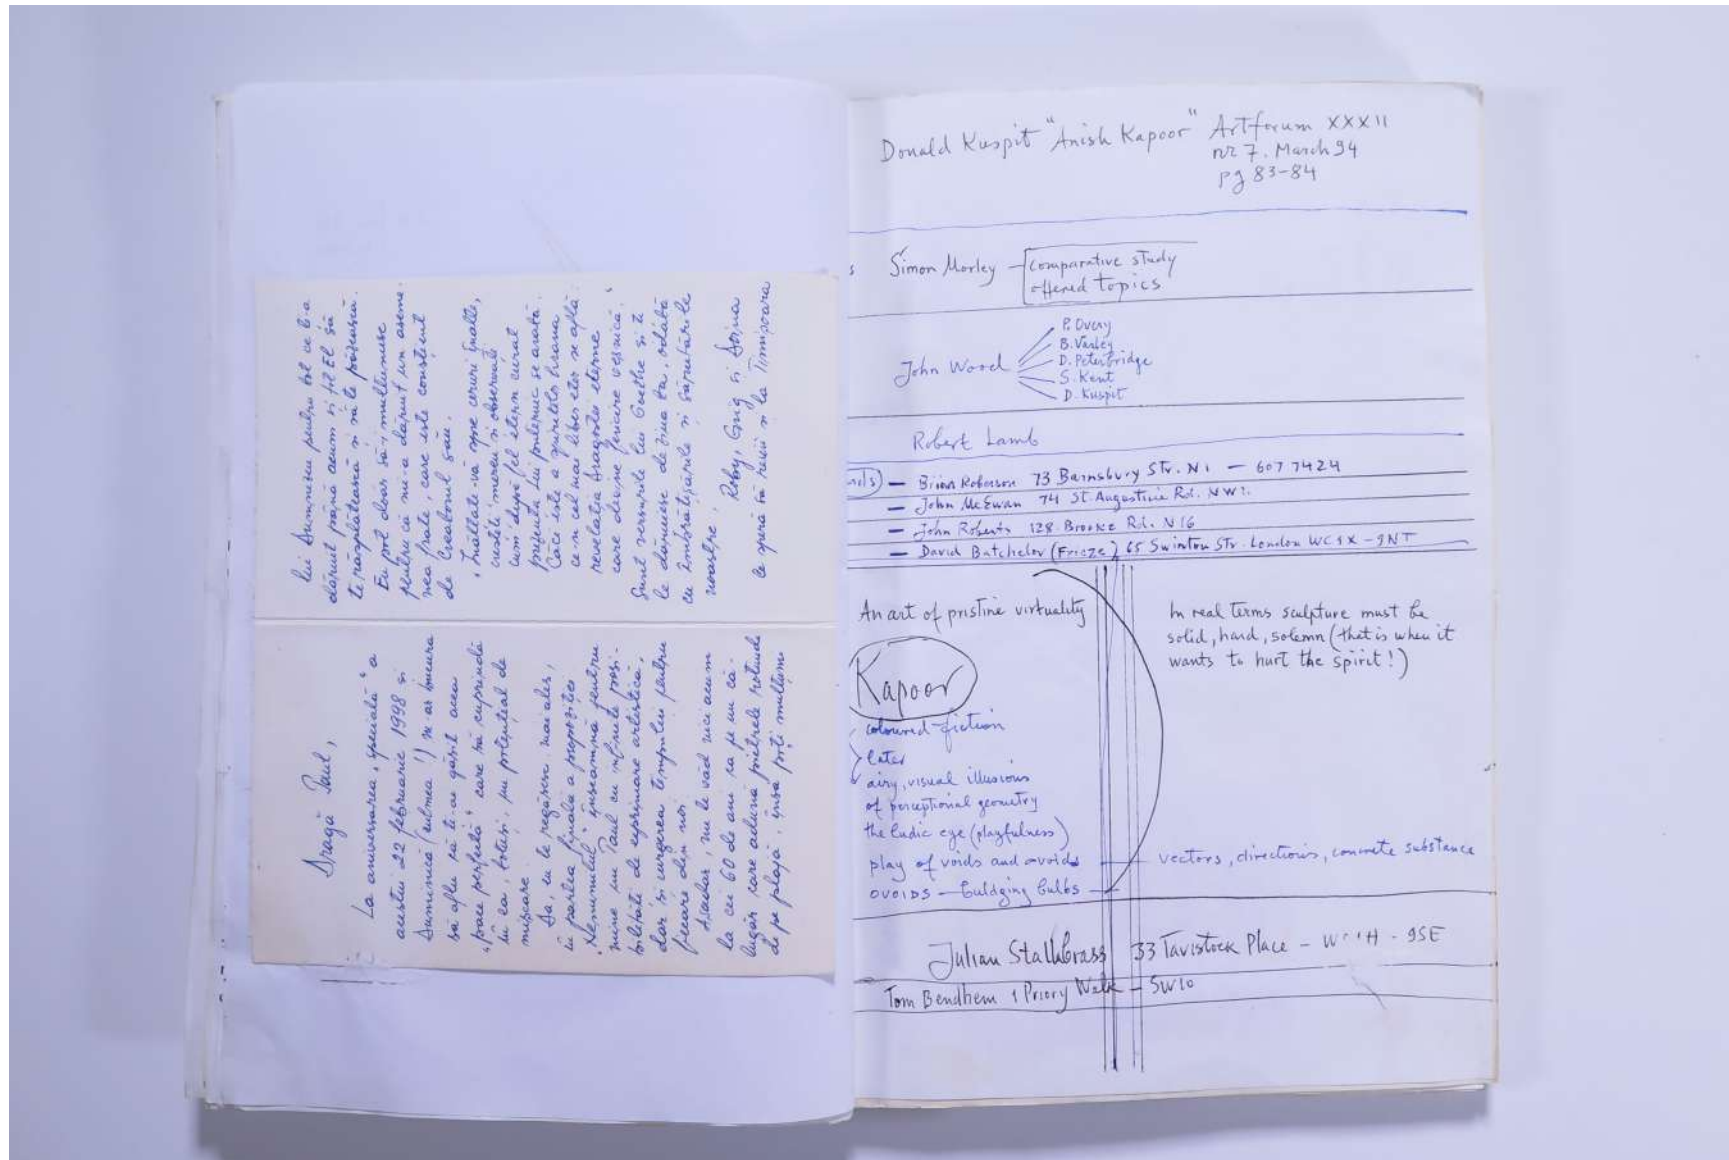 Dragă Paul,
La aniversarea „specială" a
acestui 22 februarie 1998 și
Duminică (culmea!) m-aș bucura
să aflu că te-ai găsit acea
„pace perfectă" care să cuprindă
în ea, totuși, un potențial de
mișcare.
Da, eu le regăsesc mai ales,
în partea finală a propoziției
„Nemurirea" înseamnă pentru
mine un Paul cu infinite posi-
bilități de exprimare artistică,
dar și curgerea timpului pentru
fiecare din noi.
Așadar, nu te văd nici acum
la cei 60 de ani ca pe un că-
lugăr care adună pietrele rotunde
de pe plajă, însă poți mulțumi
lui Dumnezeu pentru tot ce ți-a
dăruit până acum și fie El să
te răsplătească și să te păzească.
Eu pot doar să-i mulțumesc
pentru că mi-a dăruit un aseme-
nea frate, care este conștient
de Creatorul său.
„Înălțați-vă spre ceruri înalte,
creșteți mereu și observați
cum după fel etern curat
prezența Lui puternic se arată.
Căci este a spiritelor hrana
ce-n cel mai liber eter se află:
revelația dragostei eterne
care devine fericire veșnică."
Sunt versurile lui Goethe și ți
le dăruiesc de ziua ta, odată
cu îmbrățișările și sărutările
noastre,
Roby, Guig și Doina
ce speră să revii și la Timișoara
Donald Kuspit "Anish Kapoor" Artforum XXXII
nr 7. March 94
pg 83-84
s Simon Morley - comparative study
offered topics
P. Overy
B. Varley
John Wood D. Peterbridge
S. Kent
D. Kuspit
Robert Lamb
nds) - Brian Roberson 73 Barnsbury Str. N1 - 607 7424
- John McEwan 74 St. Augustine Rd. NW1.
- John Roberts 128 Brooke Rd. N16
- David Batchelor (Frieze) 65 Swinton Str. London WC1X - 9NT
An art of pristine virtuality
Kapoor
coloured fiction
later
airy, visual illusions
of perceptional geometry
the ludic eye (playfulness)
play of voids and ovoids
OVOIDS - buldging bulbs
In real terms sculpture must be
solid, hard, solemn (that is when it
wants to hurt the spirit!)
vectors, directions, concrete substance
Julian Stallabrass 33 Tavistock Place - 9SE
Tom Bendhem 1 Priory Walk - SW10